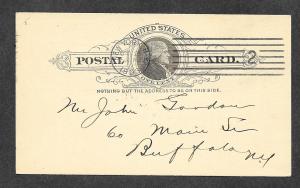 UNITED STATES
POSTAL CARD.
ONE CENT
NOTHING BUT THE ADDRESS TO BE ON THIS SIDE.
2
Mr John
60 Main St
Buffalo NY